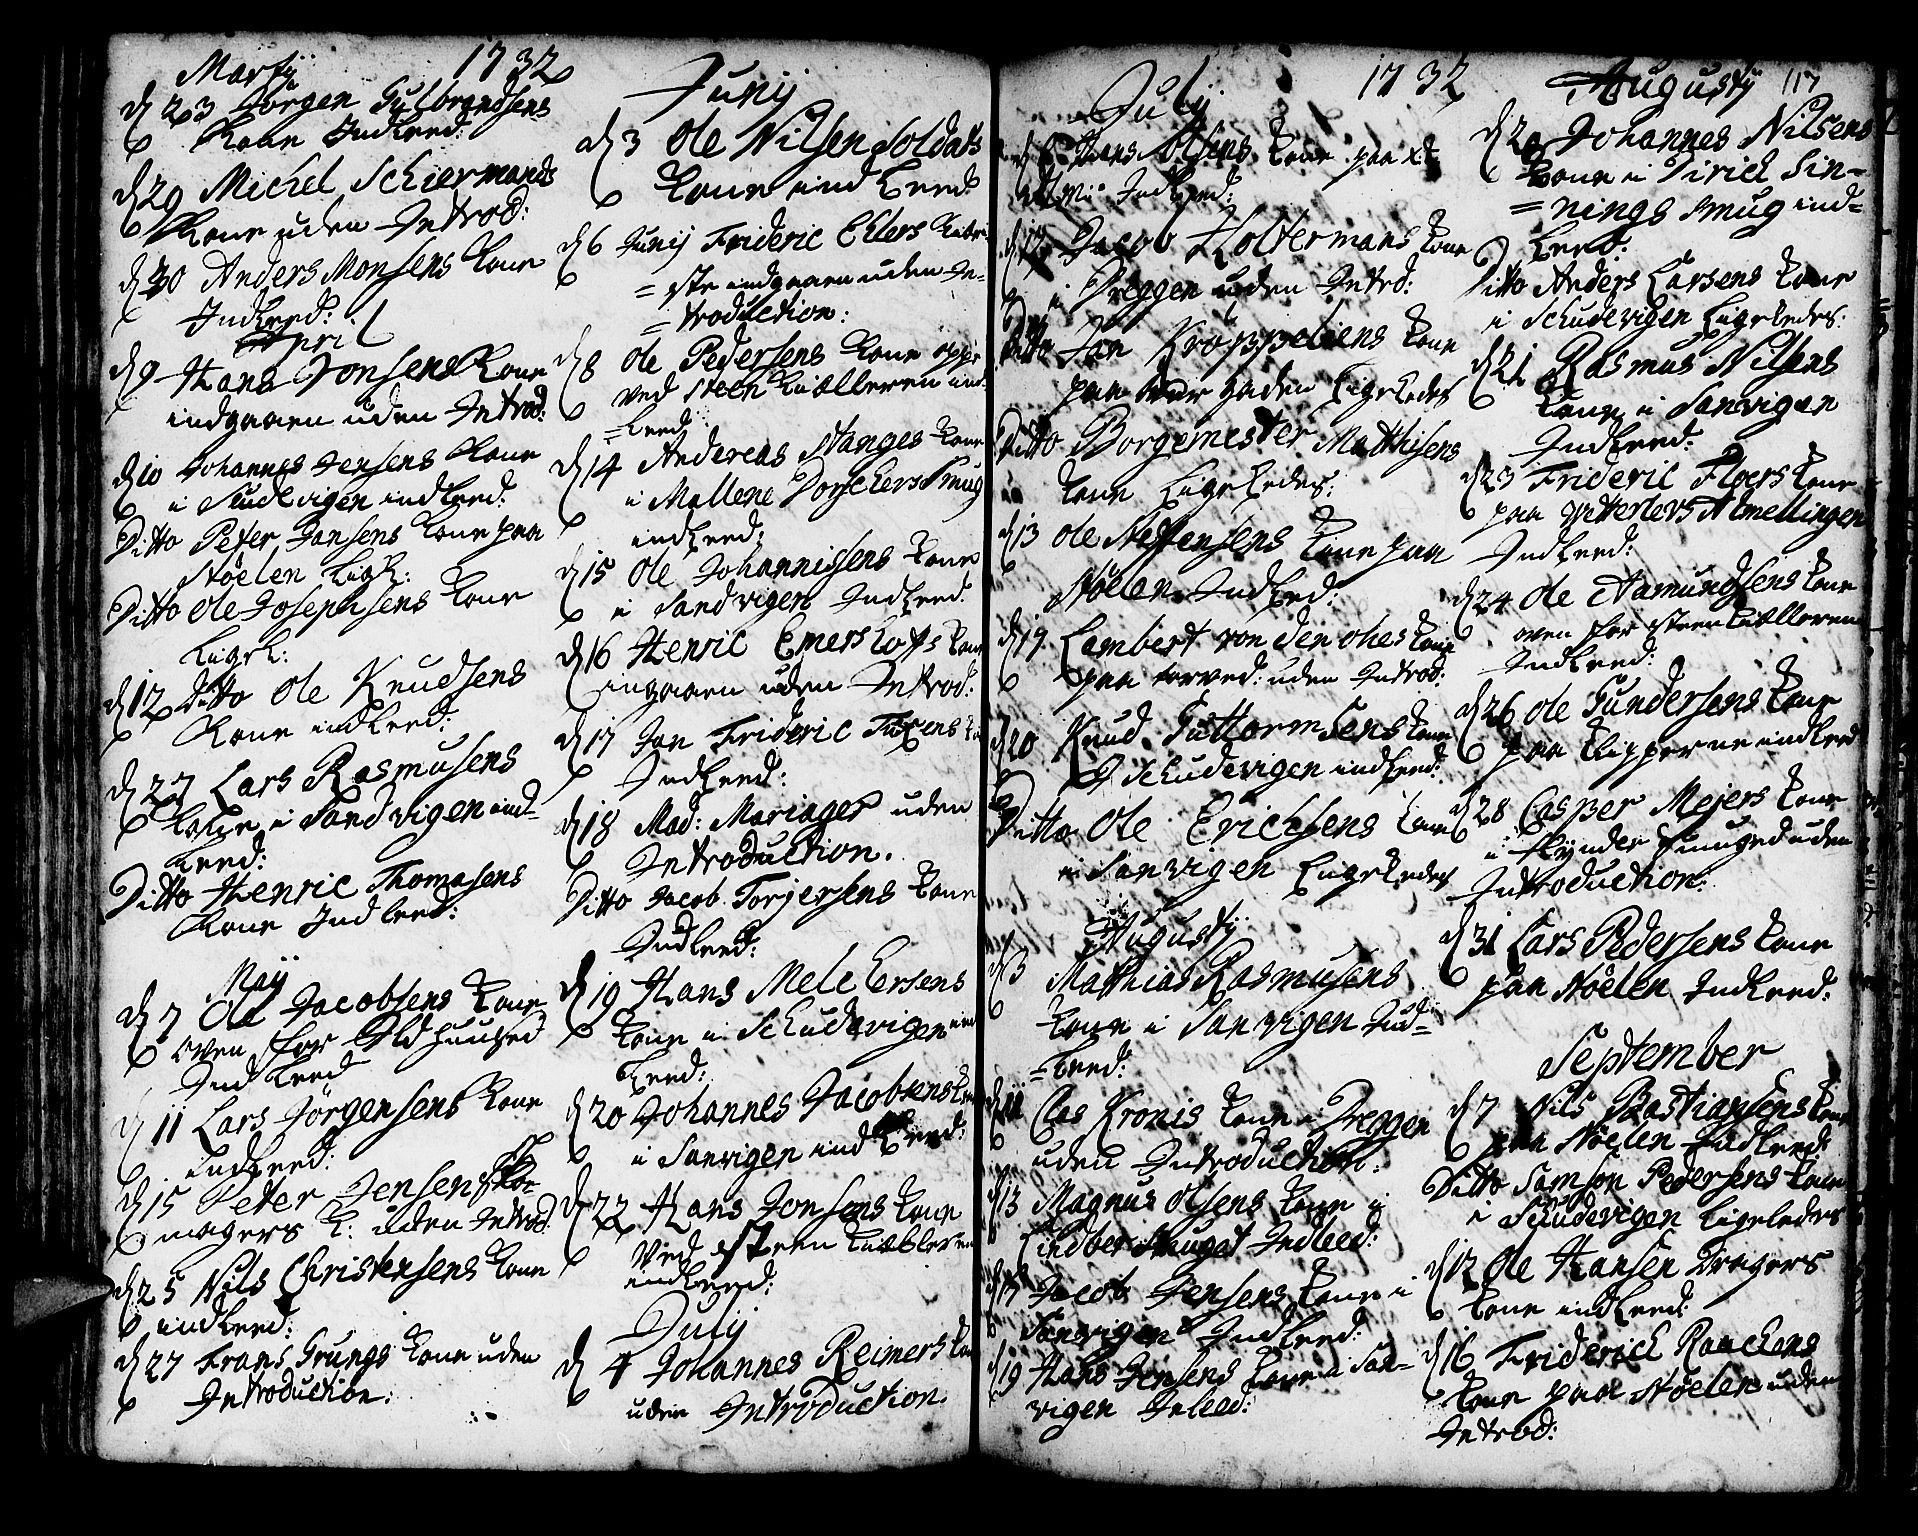 Martij 1732
d 23 Jørgen Gulbrandsens
Kone Indleed:
d 29 Michel Schiermands
Kone uden Introd:
d 30 Anders Monsens Kone
Indleed:
April
d 9 Hans Jonsens Kone
indgaaen uden Introd:
d 10 Johannes Jensens Kone
i Skudevigen indleed:
Ditto Peter Jansens Kone paa
Nøelen Ligl:
Ditto Ole Josephsens Kone
Ligel:
d 12 Ditto Ole Knudsens
Kone indleed:
d 27 Lars Rasmusens
Kone i Sandvigen ind=
leed:
Ditto Henric Thomasens
Kone Indleed:
Maij
d 7 Ole Jacobsens Kone
oven for Ildhuused
Indleed
d 11 Lars Jørgensens Kone
indleed:
d 15 Peter Jensen Sko=
magers K: uden Introd
d 25 Nils Christensens Kone
indleed:
d 27 Frans Grungs Kone uden
Introduction:
Junij
d 3 Ole Nilsen Soldats
Kone indleed
d 6 Junij Frideric Ehlers
indgaaen uden In=
=troduction:
d 8 Ole Pedersens Kone oppe
ved Steen Kiælleren ind
=leed:
d 14 Andereas Stanges Kone
i Mallene Dorschers Smug
indleed:
d 15 Ole Johannissens Kone
i Sandvigen Indleed:
d 16 Henric Emershoffs Kone
ingaaen uden Introd:
d 17 Jan Frideric Tuxens
Indleed:
d 18 Mad: Mariager uden
Introduction.
Ditto Jacob Torjersens Kone
Indleed:
d 19 Hans Mele Ersens
Kone i Schudevigen ind
leed:
d 20 Johannes Jacobsens
i Sanvigen indleed:
d 22 Hans Jonsens Kone
ved Steen Kiælleren
indleed:
Julij
d 4 Johannes Reimers
uden Introduction.
Julij 1732
Hans Olsens Kone paa
Indleed:
Jacob Holtermans Kone
i Dreggen uden Introd:
Ditto Jan Kroppeliens Kone
paa gaden Ligeledes
Ditto Borgemester Matthisens
Kone Ligeledes:
d 13 Ole Steffensens Kone paa
Nøelen Indleed:
d 19 Lambert von den ohes Kone
paa torved: uden Introd:
d 20 Knud Guttormsens Kone
i Schudevigen indleed:
Ditto Ole Erichsens Kone
i Sanvigen Ligeledes
Augustij
d 3 Matthias Rasmusens
Kone i Sanvigen Ind=
=leed:
d 11 Clas Kronis Kone i Dreggen
uden Introduction:
d 13 Magnus Olsens Kone i
Lindber Smuget Indleed:
Jacob Jensens Kone i
Sanvigen Indleed:
d 19 Hans Jensens Kone i San=
vigen Inleed:
Augustij 117
d 20 Johannes Nilsens
Kone i Dirich Sin=
=nings smug ind=
leed:
Ditto Anders Larsens Kone
i Schudevigen Ligeledes:
d 21 Rasmus Nilsens
Kone i Sanvigen
Indleed:
d 23 Frideric Flgers Kone
paa Almellingen
Indleed:
d 24 Ole Aamundsens Kone
oven for Steen Kiælleren
Indleed:
d 26 Ole Gundersens Kone
paa Klipperne indleed
d 28 Casper Mejers Kone
i Skynder Smuged uden
Introduction:
d 31 Lars Pedersens Kone
paa Nøelen Indleed:
September
d 7 Nils Bastiansens Kone
paa Nøelen Indleed:
Ditto Samson Pedersens Kone
i Schudevigen Ligeledes
d 12 Ole Hansen Dragers
Kone indleed:
d 16 Friderich Raachens
Kone paa Nøelen uden
Introd: